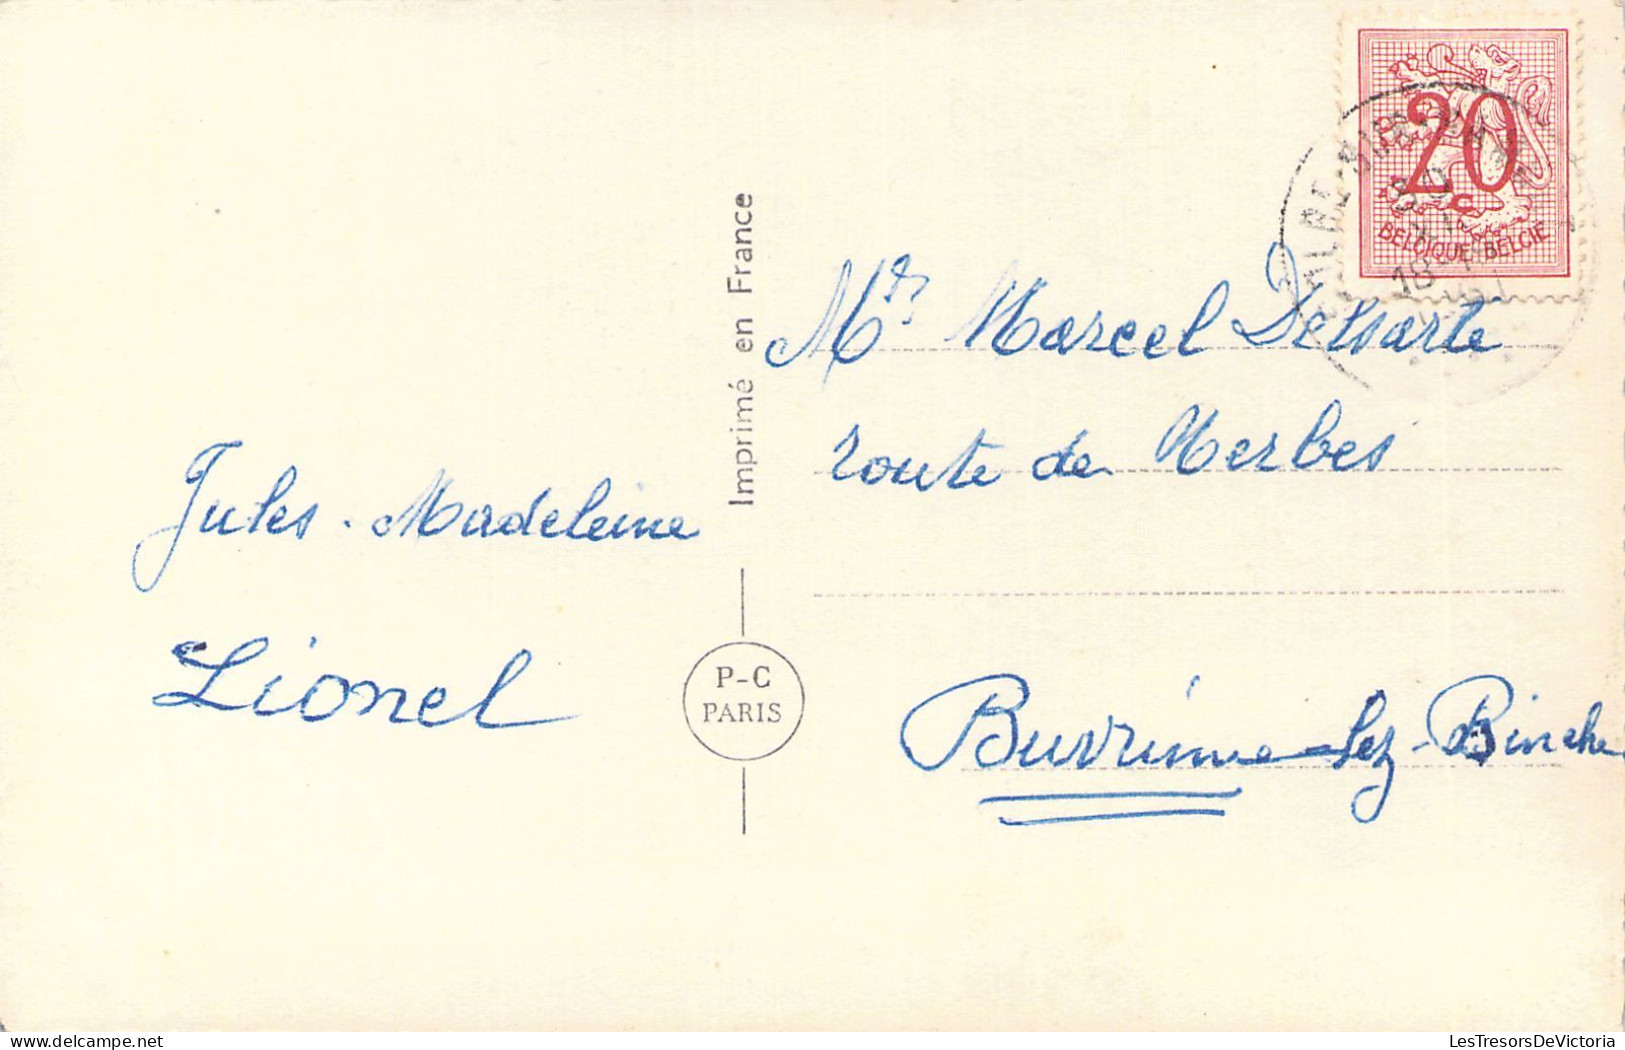 20
c
BELGIQUE-BELGIE
18
Imprimé en France
Mr Marcel Delsarte
route de Merbes
Jules . Madeleine
Lionel
P-C
PARIS
Buvrinne-lez-Binche
LesTresorsDeVictoria
www.delcampe.net